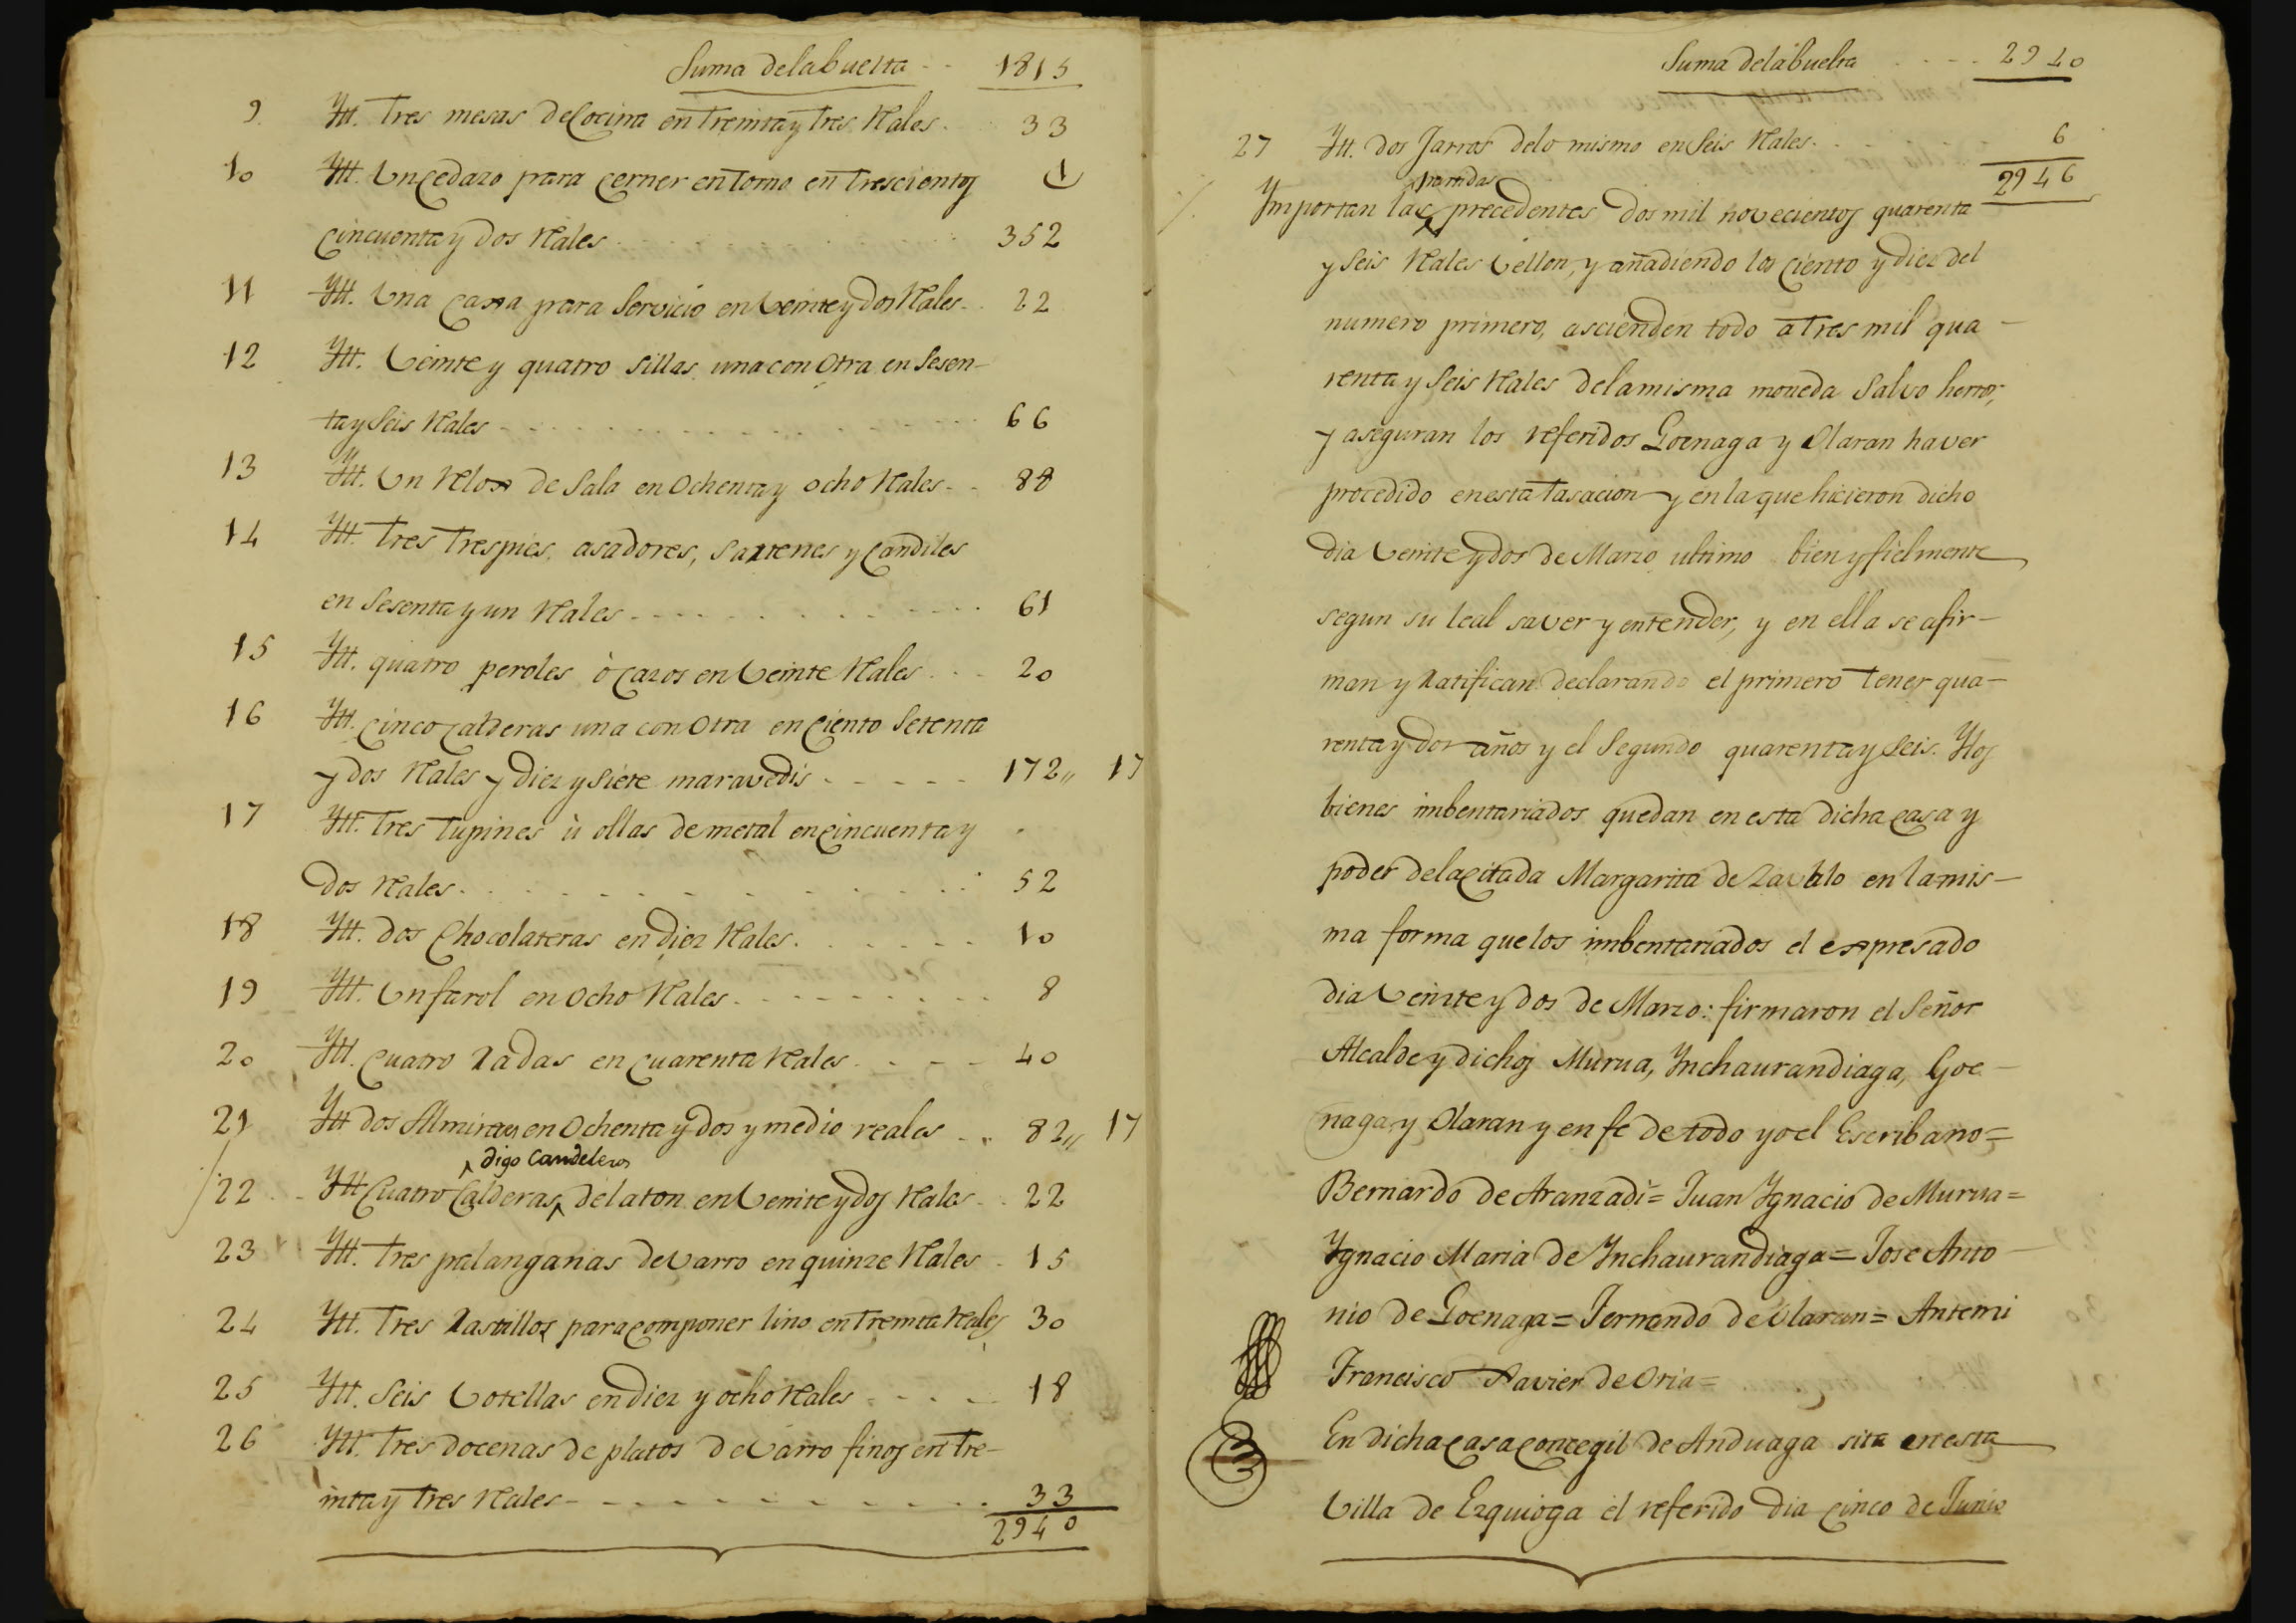 Suma delabuelta - - 1815
9. Ytt. Tres mesas de Cocina en Treinta y tres Rales. 33
10 Ytt. Un Cedazo para Cerner en Torno en trescientos
Cincuenta y dos Rales. 352
11 Ytt. Una Caxa para Servicio en Veinte y dos Rales. 22
12 Ytt. Veinte y quatro sillas una con Otra en Sesen-
ta y Seis Rales 66
13 Ytt. Un Relox de Sala en Ochenta y ocho Rales. 88
14 Ytt. Tres Trespies, asadores, Sartenes y Candiles
en Sesenta y un Rales 61
15 Ytt. quatro peroles ò Cazos en Veinte Rales 20
16 Ytt. Cinco Calderas una con Otra en Ciento Setenta
y dos Rales y diez y Siete maravedis 172,, 17
17 Ytt. Tres Tupines ù ollas de metal en Cincuenta y
dos Rales. 52
18 Ytt. dos Chocolateras en diez Rales. 10
19 Ytt. Un farol en Ocho Rales. 8
20 Ytt. Cuatro Radas en Cuarenta Rales. 40
21 Ytt dos Almireces en Ochenta y dos y medio reales 82,, 17
digo Candeleros
22 Ytt Cuatro Calderas de laton en Veinte y dos Rales 22
23 Ytt. Tres palanganas de Varro en quinze Rales 15
24 Ytt. Tres Rastillos para componer lino en Treinta Rales 30
25 Ytt. Seis Votellas en diez y ocho Rales 18
26 Ytt. Tres docenas de platos de Varro finos en Tre-
inta y Tres Rales 33
2940
Suma delabuelta 2940
27 Ytt. dos Jarros delo mismo en Seis Rales. 6
2946
partidas
Ymportan las precedentes dos mil novecientos quarenta
y Seis Rales Vellon, y añadiendo los Ciento y diez del
numero primero, ascienden todo a Tres mil qua-
renta y Seis Rales de la misma moneda Salvo herror,
y aseguran los referidos Goenaga y Olaran haver
procedido en esta Tasacion y en la que hicieron dicho
dia Veinte y dos de Marzo ultimo bien y fielmente
segun su leal saver y entender, y en ella se afir-
man y Ratifican declarando el primero Tener qua-
renta y dos años y el Segundo quarenta y Seis. Ylos
bienes imbentariados quedan en esta dicha Casa y
poder dela Citada Margarita de Zavalo en la mis-
ma forma que los imbentariados el expresado
dia Veinte y dos de Marzo: firmaron el Señor
Alcalde y dichos Murua, Ynchaurandiaga, Goe-
naga y Olaran y en fe de todo yo el Escribano=
Bernardo de Aranzadi= Juan Ygnacio de Murua=
Ygnacio Maria de Ynchaurandiaga= Jose Anto
nio de Goenaga= Fernando de Olaran= Antemi
Francisco Xavier de Oria=
En dicha Casa Concegil de Anduaga sita en esta
Villa de Ezquioga el referido dia Cinco de Junio